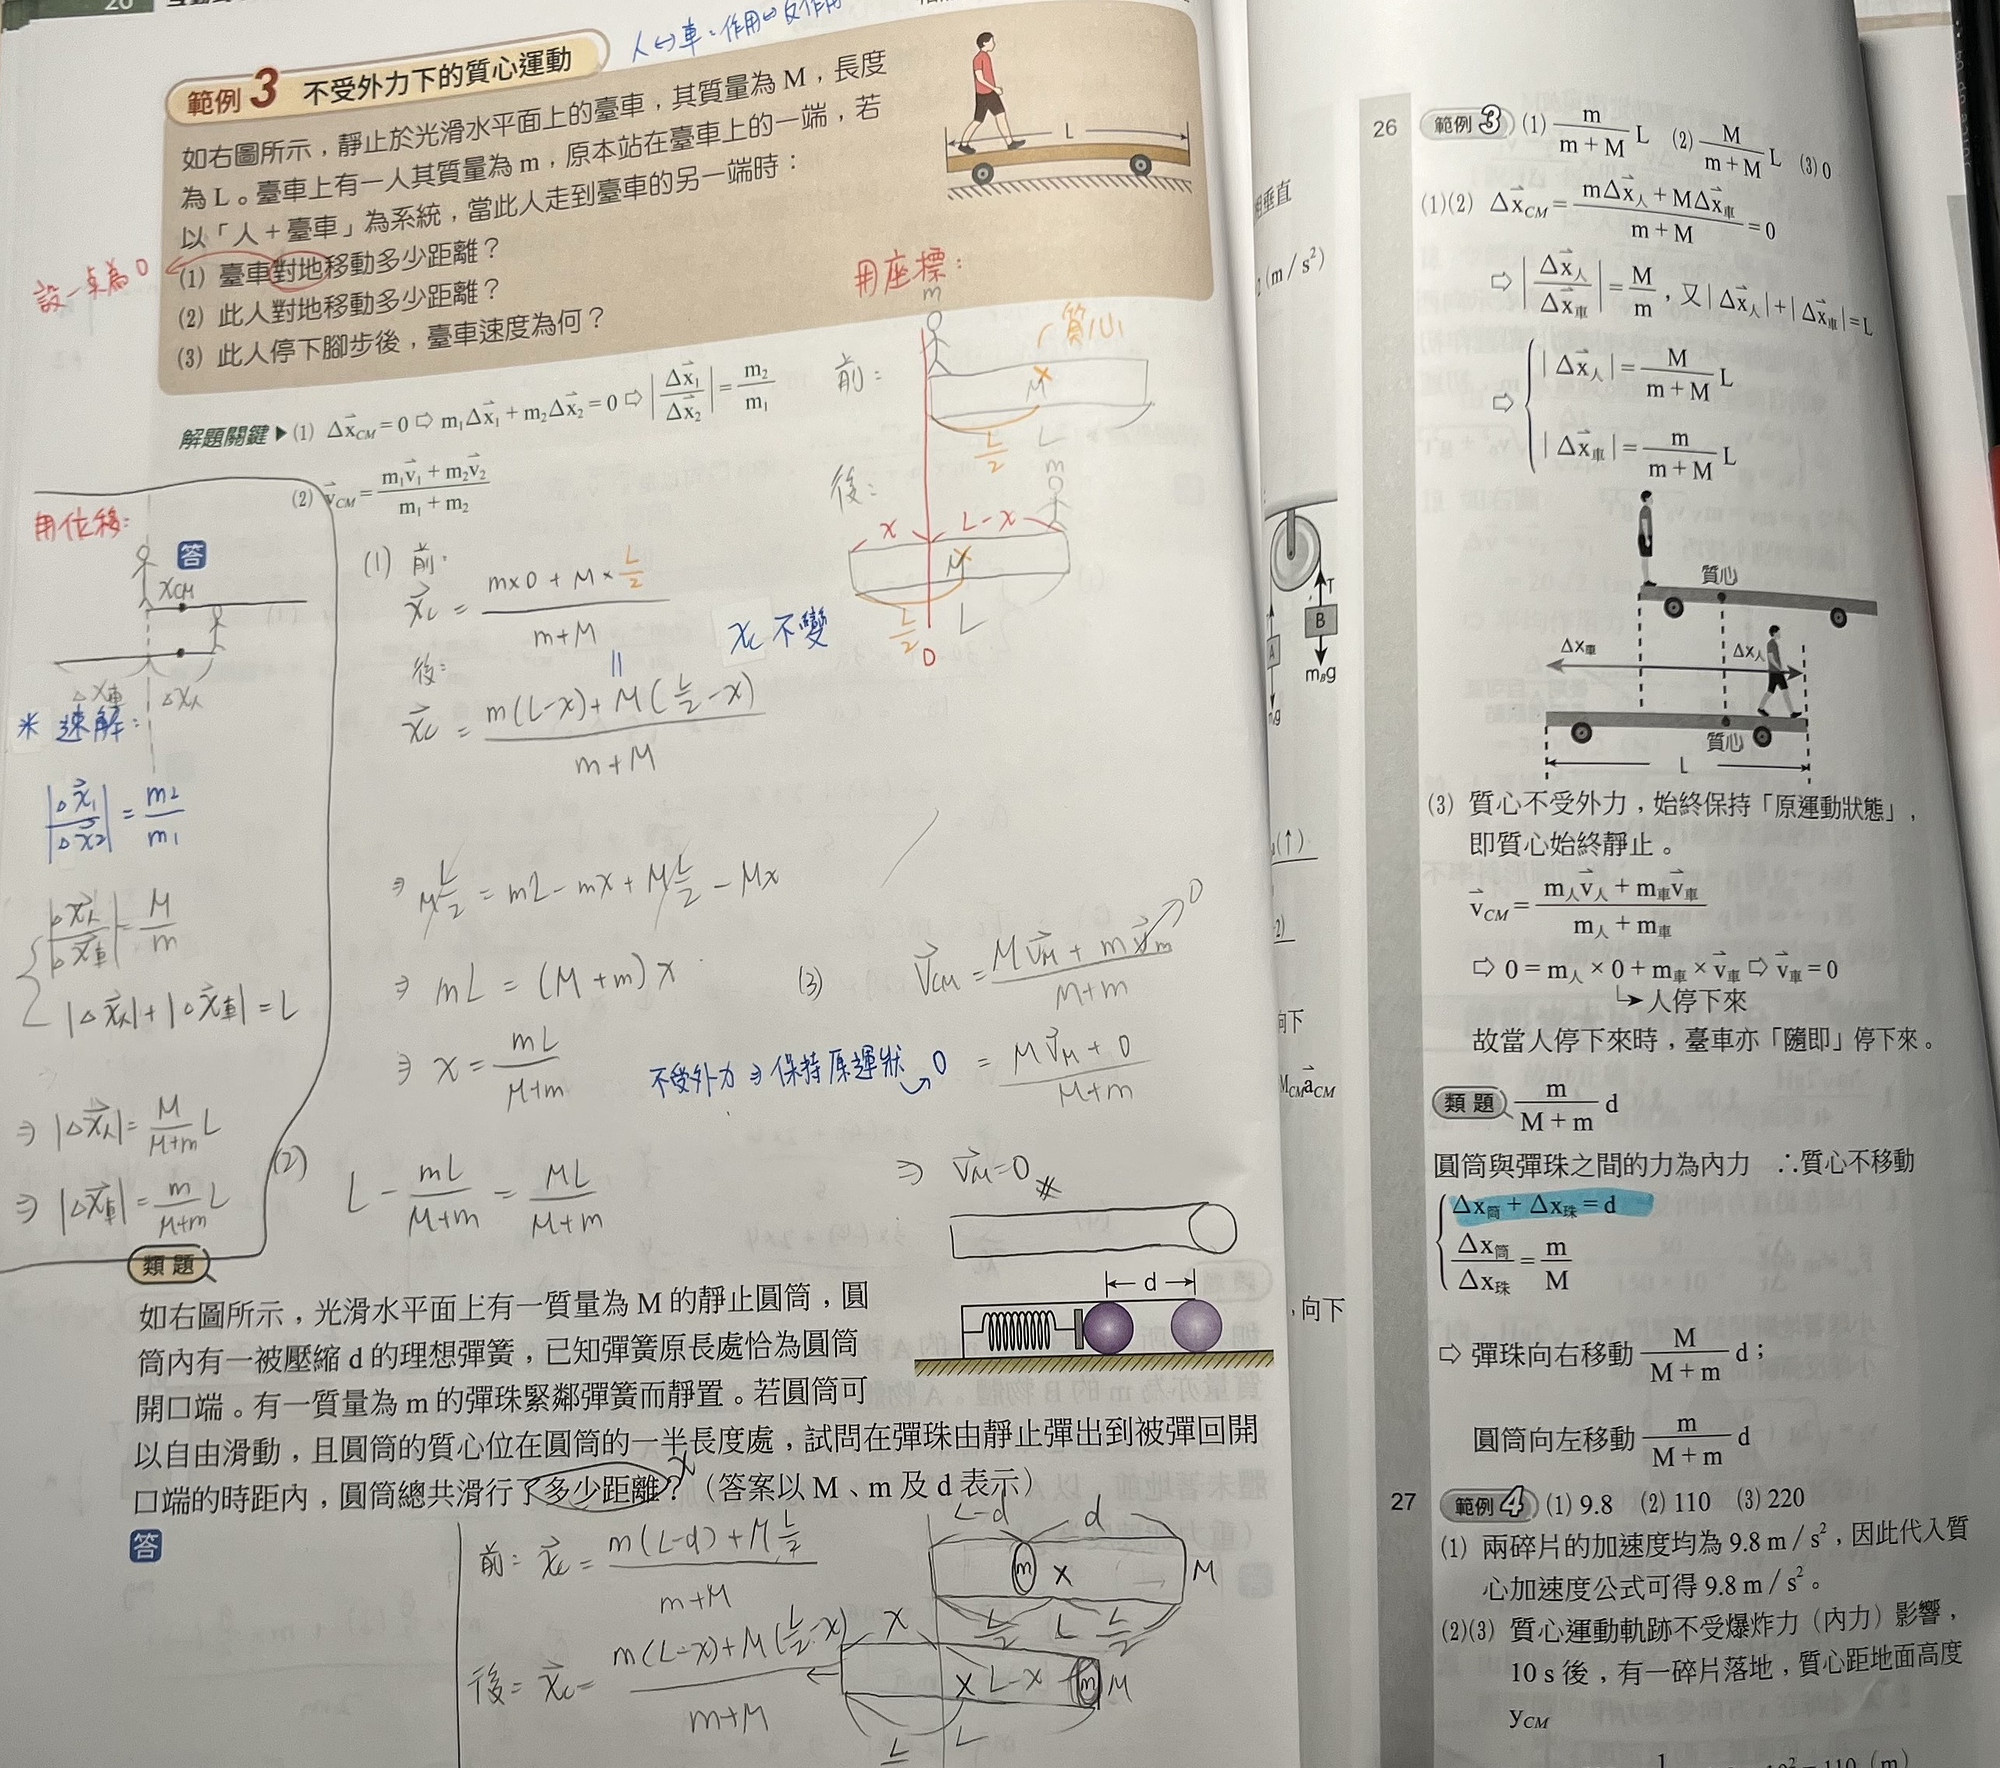 20
人⇔車：作用⇔反作用
範例 3 不受外力下的質心運動
如右圖所示，靜止於光滑水平面上的臺車，其質量為 M，長度
為 L。臺車上有一人其質量為 m，原本站在臺車上的一端，若
以「人＋臺車」為系統，當此人走到臺車的另一端時：
(1) 臺車對地移動多少距離？
(2) 此人對地移動多少距離？
(3) 此人停下腳步後，臺車速度為何？
L
設一桌為 0
用座標：
解題關鍵▶(1) Δx⃗CM = 0 ⇨ m₁Δx⃗₁ + m₂Δx⃗₂ = 0 ⇨ |Δx⃗₁/Δx⃗₂| = m₂/m₁
(2) v⃗CM = (m₁v⃗₁ + m₂v⃗₂)/(m₁ + m₂)
前：
m
質心
M
L/2
L
後：
m
x
L-x
M
L/2
L
0
用位移：
答
xCM
Δx車 Δx人
＊速解：
|Δx⃗₁|/|Δx⃗₂| = m₂/m₁
|Δx⃗人|/|Δx⃗車| = M/m
|Δx⃗人|+|Δx⃗車| = L
⇒ |Δx⃗人| = M/(M+m) L
⇒ |Δx⃗車| = m/(M+m) L
(1) 前：
x⃗c = (m×0 + M×L/2)/(m+M)
xc 不變
後：
x⃗c = (m(L-x)+M(L/2-x))/(m+M)
⇒ M L/2 = mL - mx + M L/2 - Mx
⇒ mL = (M+m)x
⇒ x = mL/(M+m)
(2) L - mL/(M+m) = ML/(M+m)
(3) v⃗CM = (Mv⃗M + mv⃗m)/(M+m)
0
不受外力⇒保持原運狀 0
= (Mv⃗M + 0)/(M+m)
⇒ v⃗M=0
類題
如右圖所示，光滑水平面上有一質量為 M 的靜止圓筒，圓
筒內有一被壓縮 d 的理想彈簧，已知彈簧原長處恰為圓筒
開口端。有一質量為 m 的彈珠緊鄰彈簧而靜置。若圓筒可
以自由滑動，且圓筒的質心位在圓筒的一半長度處，試問在彈珠由靜止彈出到被彈回開
口端的時距內，圓筒總共滑行了多少距離？（答案以 M、m 及 d 表示）
d
x
答
前：x⃗c = (m(L-d)+M L/2)/(m+M)
後：x⃗c = (m(L-x)+M(L/2-x))/(m+M)
L-d
d
m
x
M
L/2 L L/2
x
x L-x m M
L
相垂直
(m/s²)
T
B
A
mBg
(↑)
向下
MCMa⃗CM
，向下
26 範例 3 (1) m/(m+M) L (2) M/(m+M) L (3) 0
(1)(2) Δx⃗CM = (mΔx⃗人 + MΔx⃗車)/(m+M) = 0
⇨ |Δx⃗人/Δx⃗車| = M/m，又|Δx⃗人|+|Δx⃗車|=L
⇨ |Δx⃗人| = M/(m+M) L
|Δx⃗車| = m/(m+M) L
質心
Δx車
Δx人
質心
L
(3) 質心不受外力，始終保持「原運動狀態」，
即質心始終靜止。
v⃗CM = (m人v⃗人 + m車v⃗車)/(m人 + m車)
⇨ 0 = m人 × 0 + m車 × v⃗車 ⇨ v⃗車 = 0
↳人停下來
故當人停下來時，臺車亦「隨即」停下來。
類題 m/(M+m) d
圓筒與彈珠之間的力為內力 ∴質心不移動
Δx筒 + Δx珠 = d
Δx筒/Δx珠 = m/M
⇨ 彈珠向右移動 M/(M+m) d；
圓筒向左移動 m/(M+m) d
27 範例 4 (1) 9.8 (2) 110 (3) 220
(1) 兩碎片的加速度均為 9.8 m/s²，因此代入質
心加速度公式可得 9.8 m/s²。
(2)(3) 質心運動軌跡不受爆炸力（內力）影響，
10 s 後，有一碎片落地，質心距地面高度
yCM